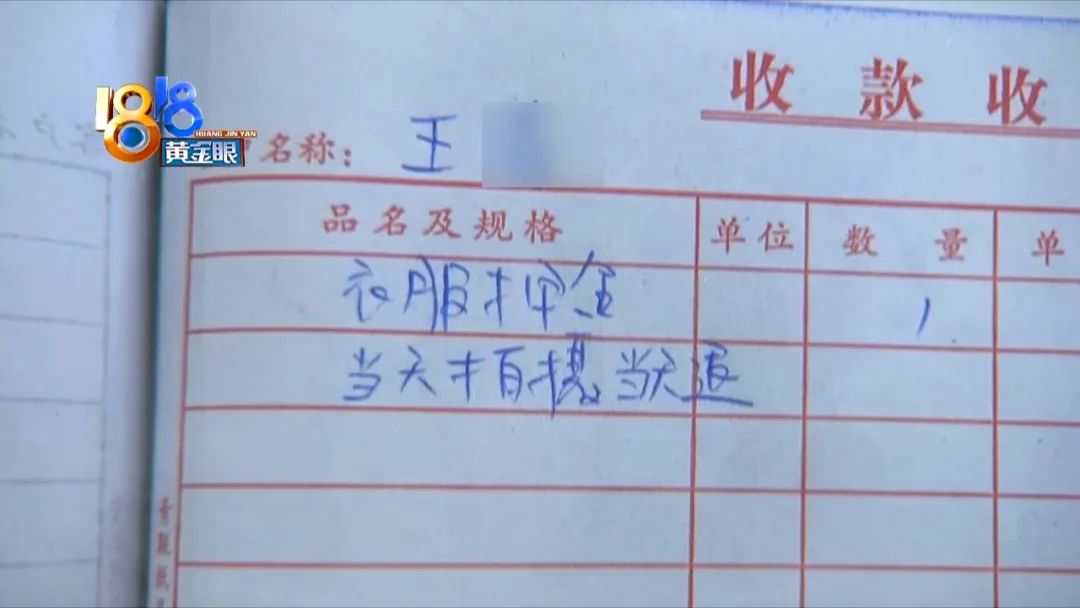 1818
HUANG JIN YAN
黄金眼
收款收
名称：王
品名及规格 单位 数量 单
衣服押金 1
当天拍摄当天退